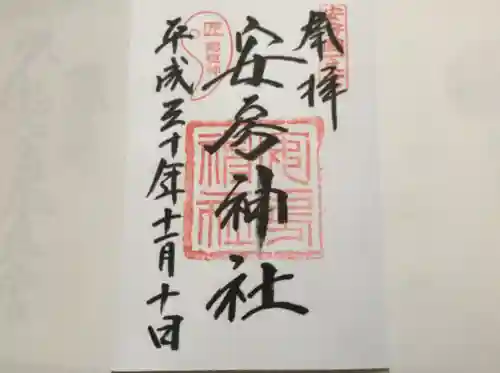 奉拝
安房神社
平成三十年十一月十日